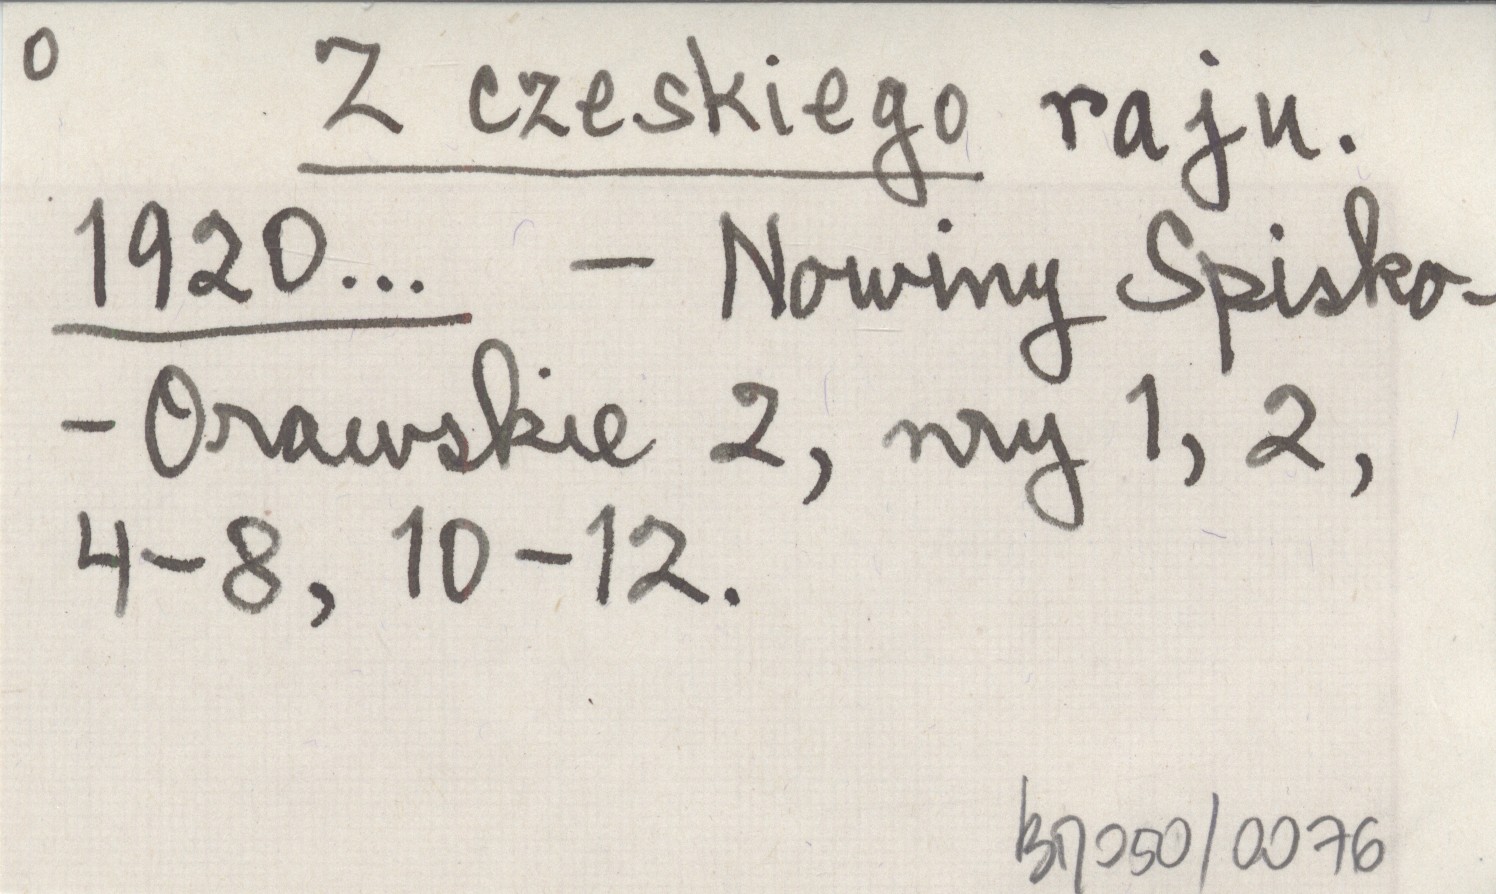 0 Z czeskiego raju.
1920... - Nowiny Spisko-
- Orawskie 2, nry 1, 2,
4-8, 10-12.
Bn050/0076